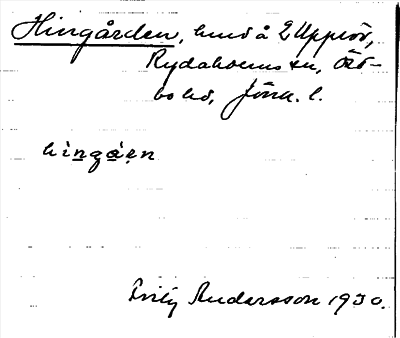 Hingården, hmd å 2 Uppror,
Rydaholms sn, Öst-
bo hd, Jönk. l.
hingáen
Andersson 1930.